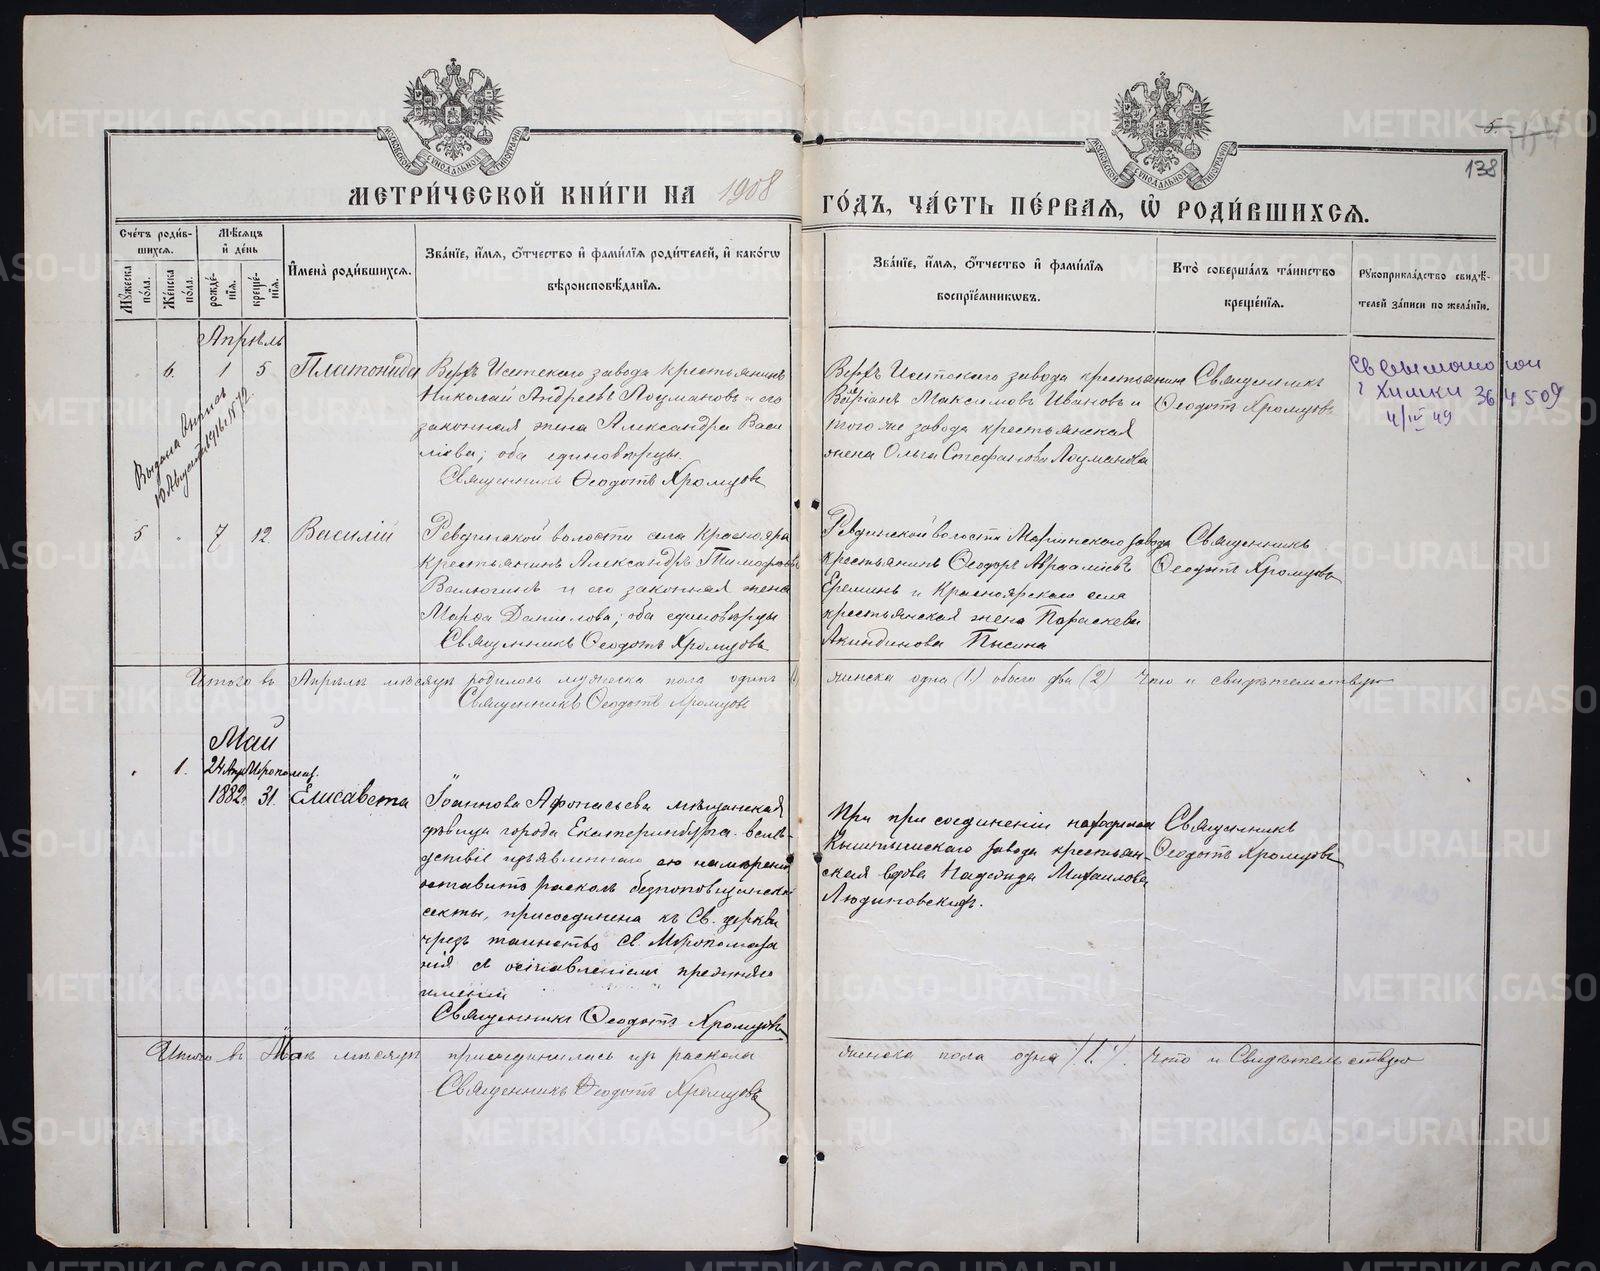 МОСКОВСКОЙ СѴНОДАЛЬНОЙ ТИПОГРАФІИ
МОСКОВСКОЙ СѴНОДАЛЬНОЙ ТИПОГРАФІИ
138
МЕТРИ́ЧЕСКОЙ КНИ́ГИ НА 1908 ГО́ДЪ, ЧА́СТЬ ПЕ́РВАѦ, Ѡ҆ РОДИ́ВШИХСѦ.
Сче́тъ роди́в-
шихсѧ.
Мꙋ́жеска по́ла.
Же́нска по́ла.
Мѣ́сѧцъ и҆ де́нь
рожде́-
нїѧ.
креще́-
нїѧ.
И҆мена̀ роди́вшихсѧ.
Зва́нїе, и҆́мѧ, ѻ҆́тчество и҆ фами́лїѧ роди́телей, и҆ како́гѡ
вѣроисповѣ́данїѧ.
Зва́нїе, и҆́мѧ, ѻ҆́тчество и҆ фами́лїѧ
воспрїе́мникѡвъ.
Кто̀ соверша́лъ та́инство
креще́нїѧ.
Рꙋкоприкла́дство свидѣ́-
телей за́писи по жела́нїю.
Апрѣль
6. 1 5 Платонида
Верхъ Исетскаго завода крестьянинъ
Николай Андреевъ Лоумановъ и его
законная жена Александра Васи
лiева; оба единовѣрцы.
Священникъ Ѳеодотъ Хромцовъ
Верхъ Исетскаго завода крестьянинъ
Максимовъ Ивановъ и
того же завода крестьянская
жена Ольга Стефанова Лоуманова
Священникъ
Ѳеодотъ Хромцовъ
г Химки 364509
4/IV 49
Выдана
10 Августа 1916 г. № 72.
5 " 7 12. Василій
Ревдинской волости села Краснояра
крестьянинъ Александръ Тимофеевъ
и его законная жена
Марѳа Данилова; оба единовѣрцы
Священникъ Ѳеодотъ Хромцовъ
Ревдинской волости Марiинскаго завода
крестьянинъ Ѳеодоръ Авраамiевъ
Ереминъ и Красноярскаго села
крестьянская жена Параскева
Акиндинова
Священникъ
Ѳеодотъ Хромцовъ
Итого въ Апрѣлѣ мѣсяцѣ родилось мужеска пола одинъ (1) женска одна (1) обоего два (2) Что и свидѣтельствую
Священникъ Ѳеодотъ Хромцовъ
Май
1. 24 Апр. Мѵропомаз.
1882 г. 31. Елисавета
Іоаннова Аѳонасьева мѣщанская
дѣвица города Екатеринбурга вслѣд-
ствiе изъявленнаго ею намѣренiя
оставить расколъ безпоповщинской
секты, присоединена къ Св. церкви
чрезъ таинство Св. Мѵропомаза
нiя съ оставленiемъ прежняго
имени
Священникъ Ѳеодотъ Хромцовъ
При присоединенiи находилась
Кыштымскаго завода крестьян-
ская вдова Надежда Михаилова
Людиновсковъ.
Священникъ
Ѳеодотъ Хромцовъ
Итого въ Маѣ мѣсяцѣ присоединилась изъ раскола женска пола одна /1/. Что и Свидѣтельствую
Священникъ Ѳеодотъ Хромцовъ
METRIKI.GASO-URAL.RU